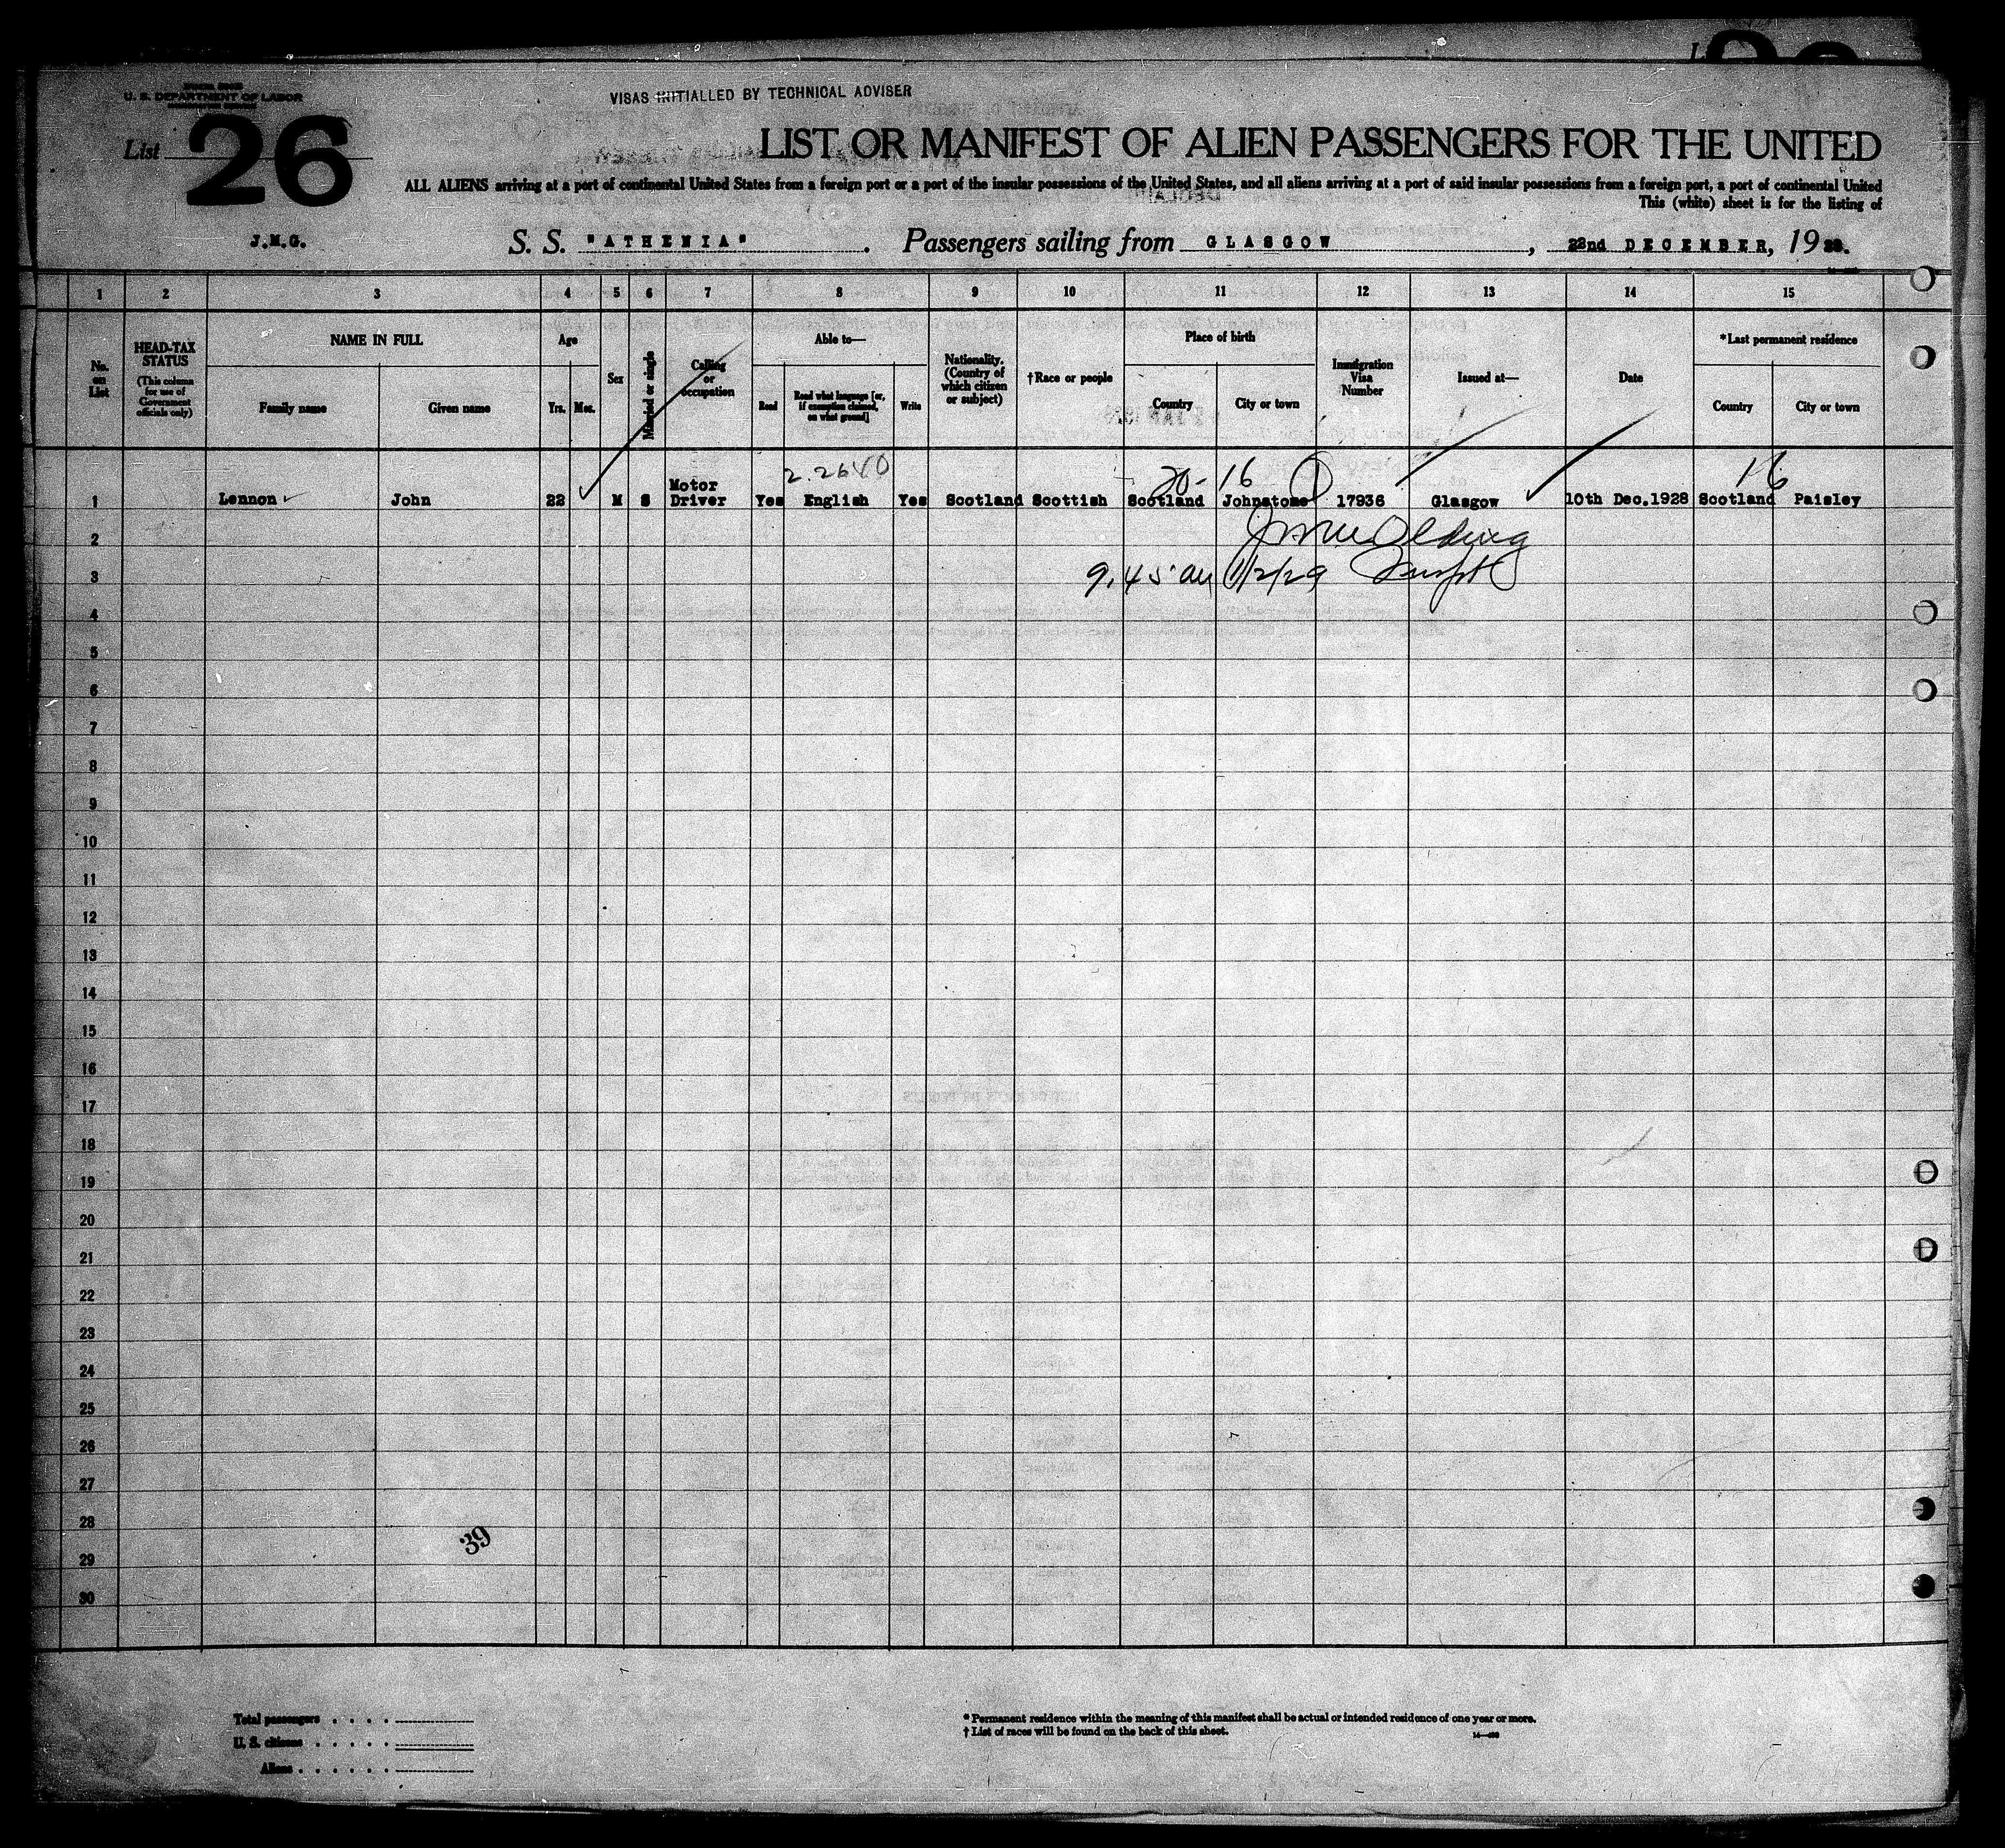 U. S. DEPARTMENT OF LABOR
VISAS INITIALLED BY TECHNICAL ADVISER
List 26
LIST OR MANIFEST OF ALIEN PASSENGERS FOR THE UNITED
ALL ALIENS arriving at a port of continental United States from a foreign port or a port of the insular possessions of the United States, and all aliens arriving at a port of said insular possessions from a foreign port, a port of continental United
This (white) sheet is for the listing of
J.M.G.
S. S. "ATHENIA". Passengers sailing from GLASGOW, 22nd DECEMBER, 1928.
1 2 3 4 5 6 7 8 9 10 11 12 13 14 15
No. on List
HEAD-TAX STATUS
(This column for use of Government officials only)
NAME IN FULL
Family name Given name
Age
Yrs. Mos.
Sex
Married or single
Calling or occupation
Able to—
Read
Read what language [or, if exemption claimed, on what ground]
Write
Nationality. (Country of which citizen or subject)
†Race or people
Place of birth
Country City or town
Immigration Visa Number
Issued at—
Date
*Last permanent residence
Country City or town
2.2640 20- 16 16
1 Lennon John 22 M S Motor Driver Yes English Yes Scotland Scottish Scotland Johnstone 17936 Glasgow 10th Dec.1928 Scotland Paisley
2
3 9.45 am 1/2/29
4
5
6
7
8
9
10
11
12
13
14
15
16
17
18
19
20
21
22
23
24
25
26
27
28
29
30
39
Total passengers
U. S. citizens
Aliens
* Permanent residence within the meaning of this manifest shall be actual or intended residence of one year or more.
† List of races will be found on the back of this sheet.